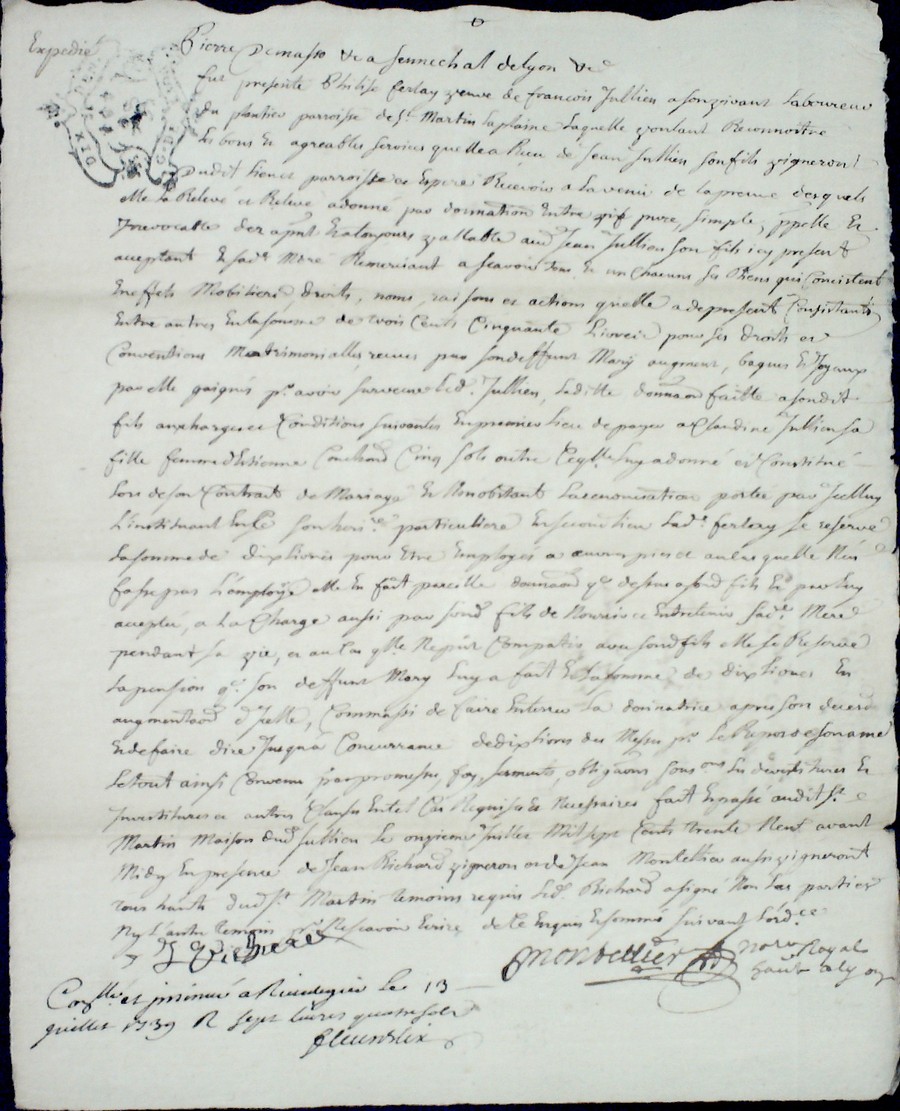 Expedié
Pierre Demasso &c a sennechal de lyon &c
fut presente Philise ferlay veuve de francois Jullien a son vivant Laboureur
du plantier parroisse de St Martin la plaine Laquelle voulant Reconnoitre
Les bons Et agreables services quelle a Receu de Jean Jullien son fils vigneron
dudit lieu et parroisse et Espere Recevoir a Lavenir de la preuve desquels
Elle La Relevé et Releve a donné par donnation Entre vif pure, simple, ppelle Et
Irrevocable des apnt Et a toujours vallable aud Jean Jullien son fils icy present
acceptant Et sad. Mere Remerciant a scavoir tous Et un Chacuns ses Biens qui Concistent
En effets Mobiliers, droits, noms, raisons et actions quelle a de present Consistants
Entre autres En la somme de trois Cents Cinquante Livres pour ses droits et
Conventions Matrimonialles, receues par son deffunt Mary augment, bagues Et Joyaux
par elle gaignés pr avoir survecu led. Jullien, Laditte donnaon faitte a sondit
fils aux charges et Conditions suivantes En premier lieu de payer a Claudine Jullien sa
fille femme d'Etienne Couchoud Cinq sols outre Ce qlle luy a donné et Constitué
Lors de son Contrait de Mariage Et Nonobstant La renonciation portée par Icelluy
L'instituant En Ce son heri.re particuliere En second lieu Lad. ferlay se reserve
La somme de dix livres pour Etre Employés a œuvres pies et au cas quelle N'en
fasse pas L'employe Elle En fait pareille donnaon q. dessus a sond fils Et par luy
acceptée, a La Charge aussi par sond fils de Nourrir et Entretenir sad. Mere
pendant sa vie, et au Cas qlle Ne put Compatir avec sond fils Elle se Reserve
La pension q. son deffunt Mary luy a fait Et la somme de dix livres En
augmentaon d'Icelle, Comm'assi de faire Enterrer La donnatrice apres son deceds
Et de faire dire Jusqu'a Concurrance de dix livres des Messes pr Le Repos de son ame
Le tout ainsi Convenu par promesses, foy, serments, obligaons sous.ons Les devestitures Et
Investitures et autres Clauses En tel Cas Requises Et Necessaires fait Et passé audit St
Martin Maison dud Jullien Le onzieme Juillet Mil sept Cents trente Neuf avant
Midy En presence de Jean Richard vigneron et de Jean Montellier aussi vigneront
tous habts dud. St Martin temoins requis Led. Richard a signé Non Les parties
Ny L'autre temoin pr Ne scavoir Ecrire de ce Enquis Et sommé suivant L'ord.ce
J Richard
Montellier
notre Royal
Conllé et insinué a Rivedegier Le 13
juillet 1739 R sept livres quatre sols
fleurdelix